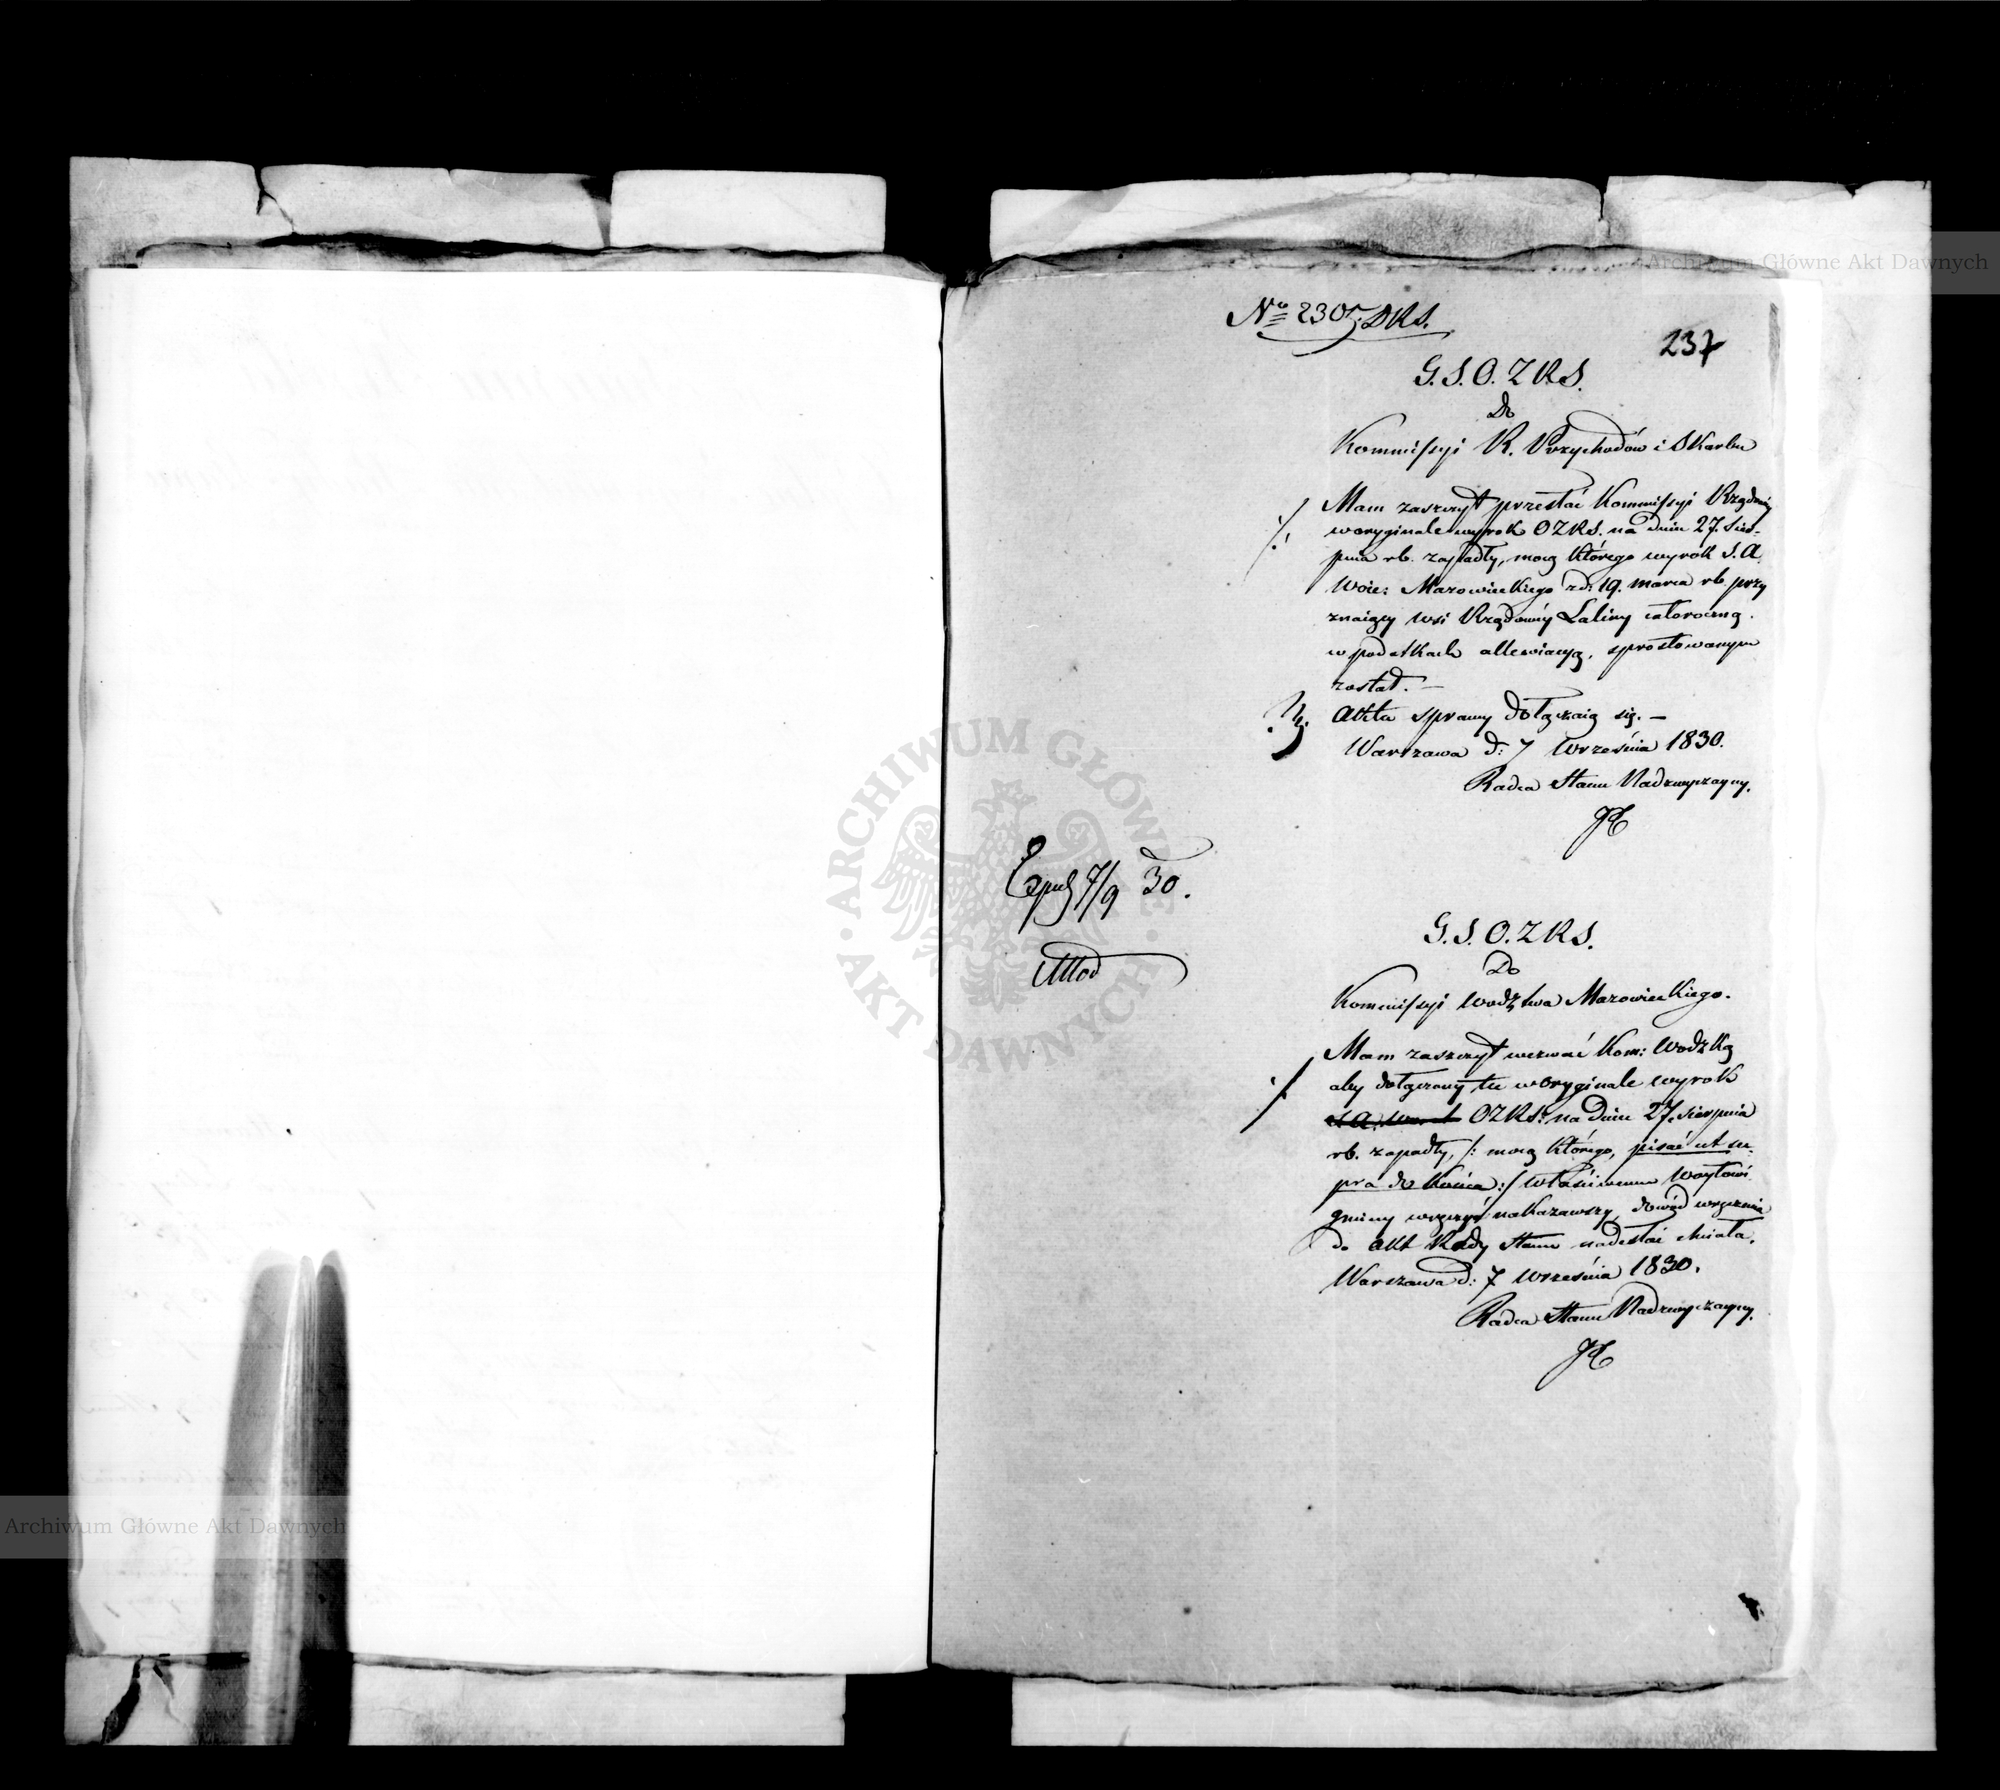 No 2305 DKS.
237
G.S.O.ZKS.
Do
Kommissyi R. Przychodów i Skarbu
Mam zaszczyt przesłać Kommissyi Rządowéy
w oryginale wyrok OZKS. na dniu 27. Sier-
pnia rb. zapadły, mocą którego wyrok S.A.
Woie: Mazowieckiego z d: 19. marca rb. przy
znaiący wsi Rządowéy Laliny całoroczną
w podatkach allewiacyą, sprostowanym
został. —
Akta sprawy dołączaią się. —
Warszawa d: 7 Września 1830.
Radca Stanu Nadzwyczayny.
Exped 7/9 30.
G.S.O.ZKS.
Do
Kommissyi Wodztwa Mazowieckiego.
Mam zaszczyt wezwać Kom: Wodzką
aby dołączony tu w oryginale wyrok
OZKS: na dniu 27. Sierpnia
rb. zapadły, /: mocą którego, pisać ut su-
pra do końca :/ właściwemu Woytowi
gminy wręczyć nakazawszy, dowód wręczenia
do Akt Rady Stanu nadesłać chciała.
Warszawa d: 7 Września 1830.
Radca Stanu Nadzwyczayny.
Archiwum Główne Akt Dawnych
ARCHIWUM GŁÓWNE AKT DAWNYCH
Archiwum Główne Akt Dawnych